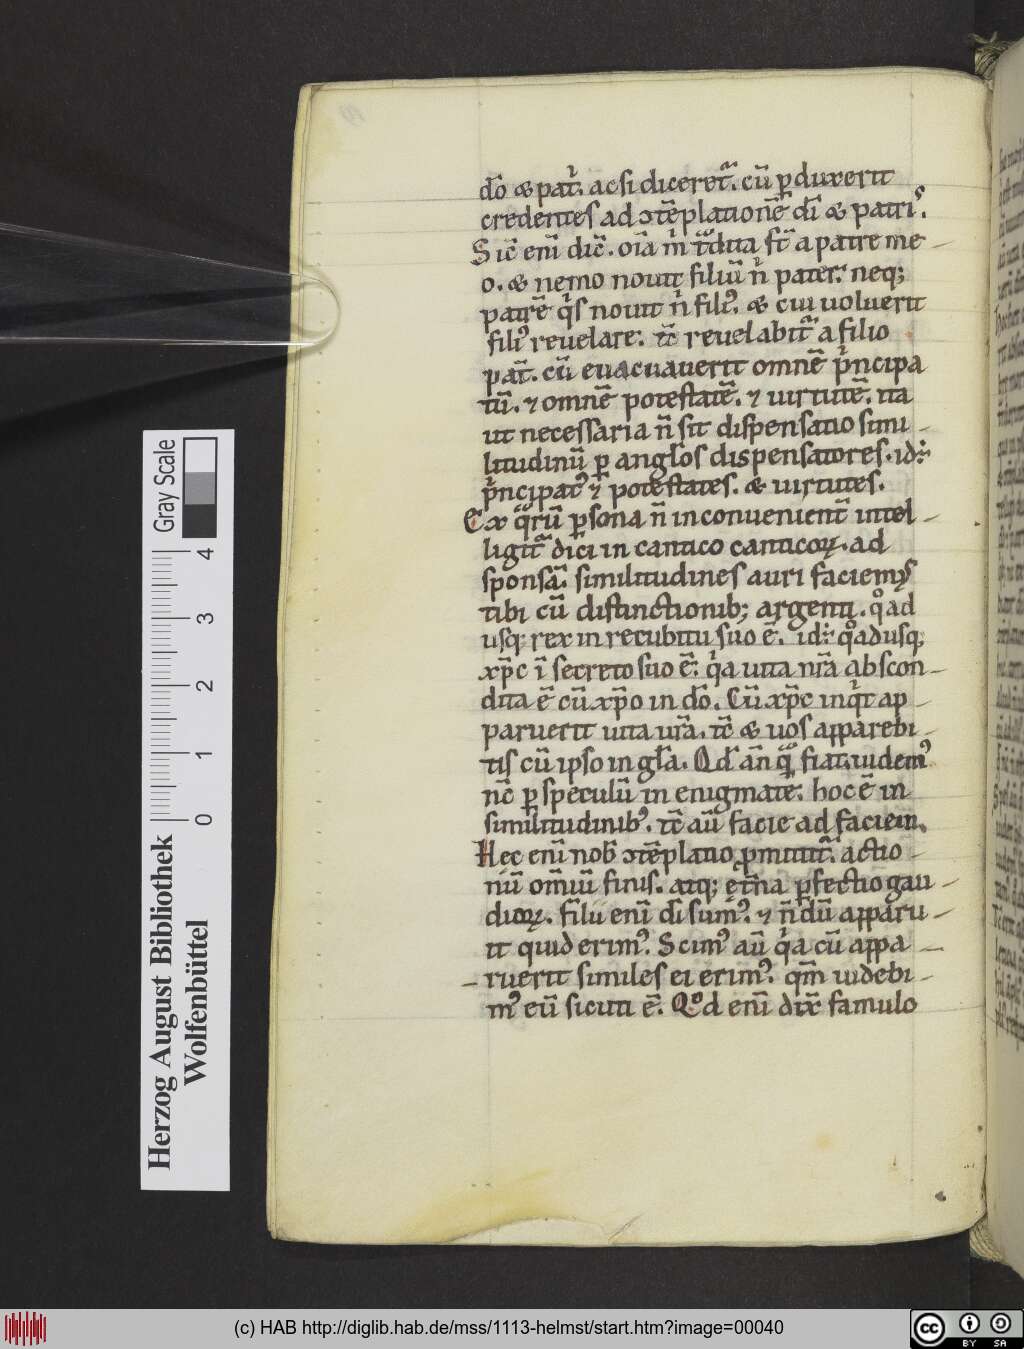 dõ & pat̃. ac si diceret̃. cũ ꝑduxerit
credentes ad ↄtẽplationẽ dĩ & patris.
Sic̃ enĩ dic̃. oĩa m̃ t̃dita st̃ a patre me-
o. & nemo nouit filiũ nͥ pater. neq;
patrẽ qͥs nouit nͥ filiꝰ. & cui uoluerit
filiꝰ reuelare. tc̃ reuelabit̃ a filio
pat̃. cũ euacuauerit omnẽ pͥncipa
tũ. ⁊ omnẽ potestatẽ. ⁊ uirtutẽ. ita
ut necessaria ñ sit dispensatio simi-
litudinũ ꝑ angl̃os dispensatores. id÷
pͥncipatꝰ ⁊ potestates. & uirtutes.
Ex qͦrũ ꝑsona ñ inconuenient̃ intel-
ligit̃ dici in cantico canticoꝝ. ad
sponsã. similitudines auri faciemꝰ
tibi cũ distinctionib; argenti. qͦad
usq; rex in recubitu suo ẽ. id÷ qͦadusq;
xp̃c ĩ secreto suo ẽ. qͥa uita nr̃a abscon-
dita ẽ cũ xp̃o in dõ. Cũ xp̃c inqͥt ap-
paruerit uita ur̃a. tc̃ & uos apparebi-
tis cũ ipso in gl̃a. Qd̃ añ qͣ fiat. uidemꝰ
nc̃ ꝑ speculũ in enigmate. hoc ẽ in
similitudinibꝰ. tc̃ aũ facie ad faciem.
Hęc enĩ nob̃ ↄtẽplatio ꝓmittit̃. actio-
nũ om̃iũ finis. atq; ęt̃na ꝑfectio gau-
dioꝝ. filii enĩ dĩ sumꝰ. ⁊ ñdũ apparu-
it quid erimꝰ. Scimꝰ aũ qͥa cũ appa-
ruerit similes ei erimꝰ. qm̃ uidebi-
mꝰ eũ sicuti ẽ. Qͦd enĩ dix̃ famulo
Gray Scale
0 1 2 3 4
Herzog August Bibliothek
Wolfenbüttel
(c) HAB http://diglib.hab.de/mss/1113-helmst/start.htm?image=00040
cc BY SA